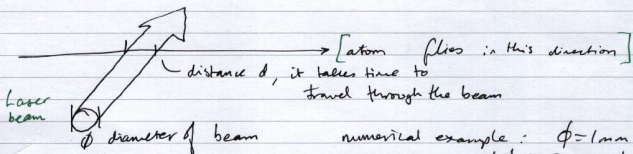 [atom flies in this direction]
distance d, it takes time to
travel through the beam
Laser
beam
ϕ diameter of beam
numerical example: ϕ=1mm